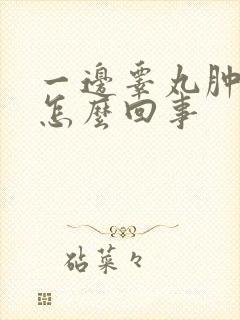 一邊睾丸肿
怎麼回事
砧菜々